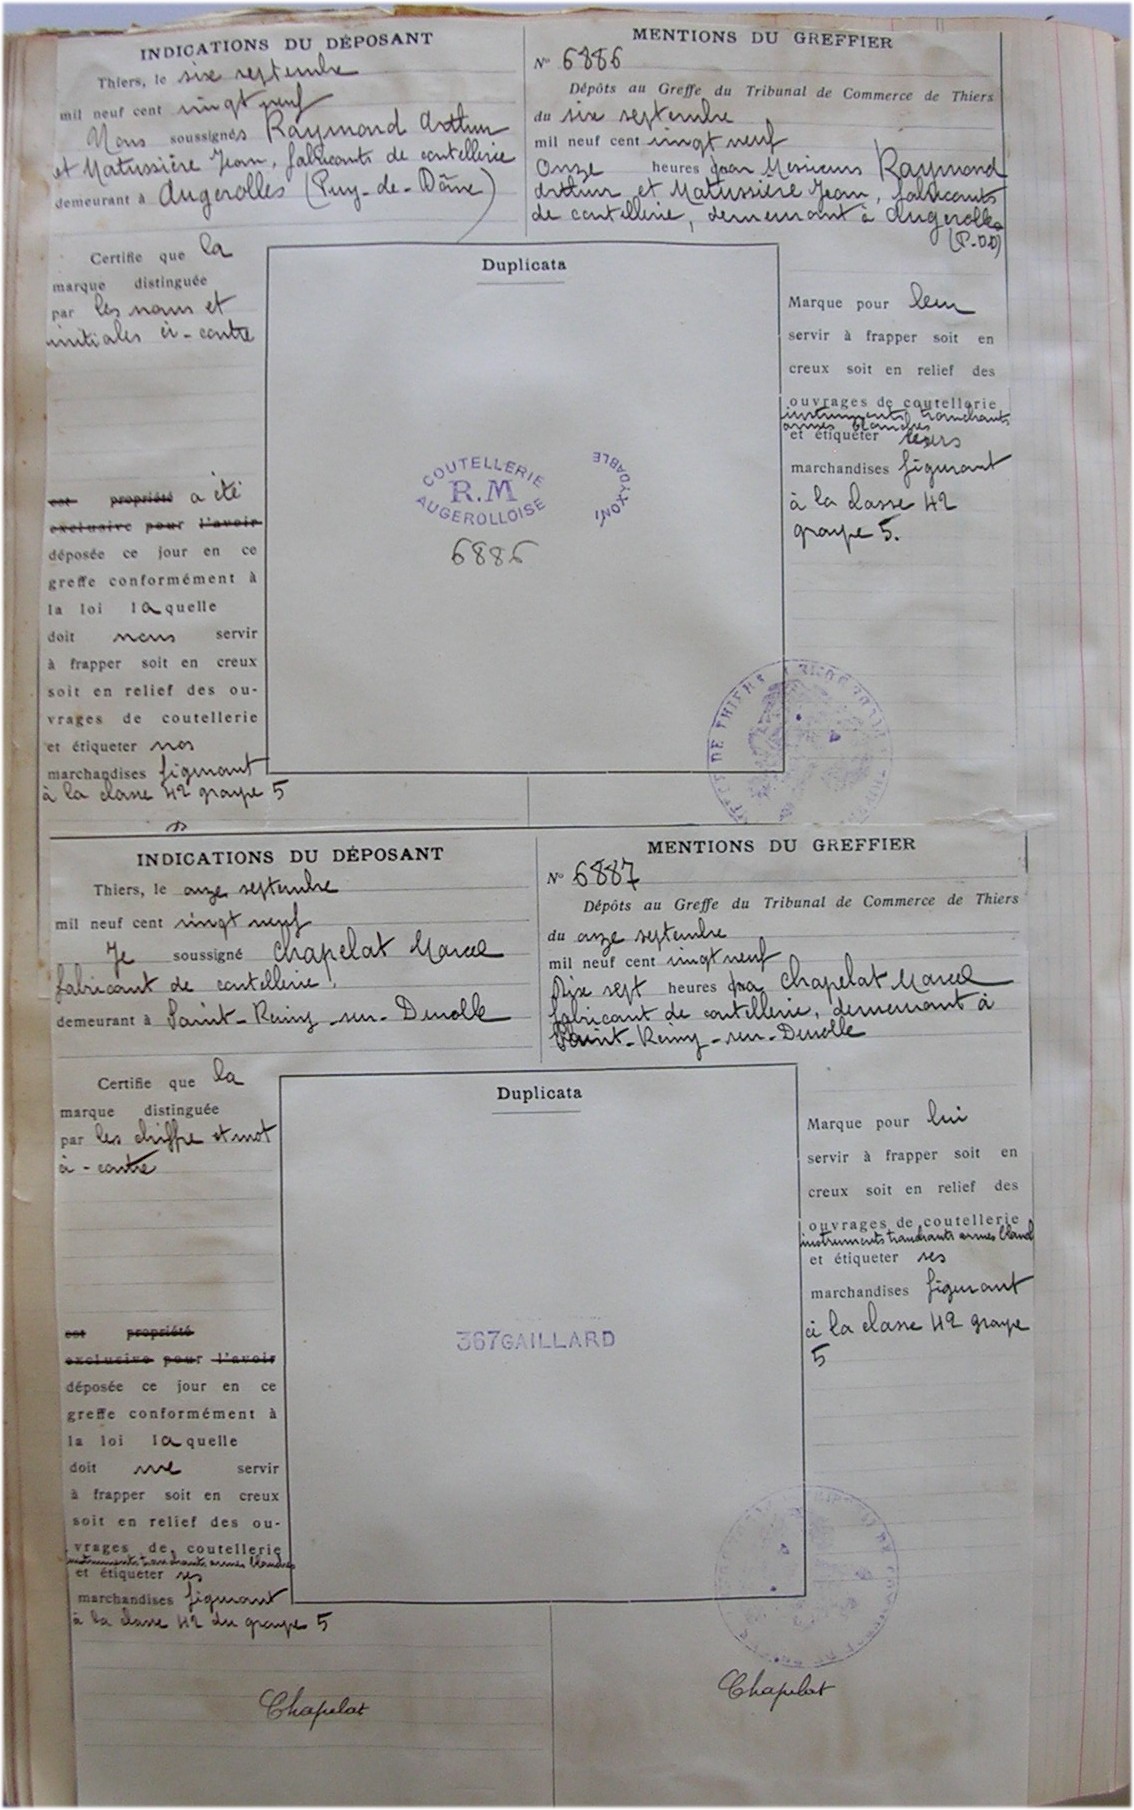 INDICATIONS DU DÉPOSANT
Thiers, le six septembre
mil neuf cent vingt neuf
Nous soussignés Raymond Arthur
et Matussière Jean, fabricants de coutellerie
demeurant à Augerolles (Puy-de-Dôme)
MENTIONS DU GREFFIER
N° 6886
Dépôts au Greffe du Tribunal de Commerce de Thiers
du six septembre
mil neuf cent vingt neuf
Onze heures par Messieurs Raymond
Arthur et Matussière Jean, fabricants
de coutellerie, demeurant à Augerolles
(P-D-D)
Certifie que la
marque distinguée
par les noms et
initiales ci-contre
est propriété a été
exclusive pour l'avoir
déposée ce jour en ce
greffe conformément à
la loi laquelle
doit nous servir
à frapper soit en creux
soit en relief des ou-
vrages de coutellerie
et étiqueter nos
marchandises figurant
à la classe 42 groupe 5
Duplicata
COUTELLERIE
R.M
AUGEROLLOISE
INOXYDABLE
6886
Marque pour leur
servir à frapper soit en
creux soit en relief des
ouvrages de coutellerie
instruments tranchants
armes blanches
et étiqueter leurs
marchandises figurant
à la classe 42
groupe 5.
DE THIERS
INDICATIONS DU DÉPOSANT
Thiers, le onze septembre
mil neuf cent vingt neuf
Je soussigné Chapelat Marcel
fabricant de coutellerie,
demeurant à Saint-Remy-sur-Durolle
MENTIONS DU GREFFIER
N° 6887
Dépôts au Greffe du Tribunal de Commerce de Thiers
du onze septembre
mil neuf cent vingt neuf
Dix sept heures par Chapelat Marcel
fabricant de coutellerie, demeurant à
Saint-Remy-sur-Durolle
Certifie que la
marque distinguée
par les chiffre et mot
ci-contre
est propriété
exclusive pour l'avoir
déposée ce jour en ce
greffe conformément à
la loi laquelle
doit me servir
à frapper soit en creux
soit en relief des ou-
vrages de coutellerie
instruments tranchants armes blanches
et étiqueter ses
marchandises figurant
à la classe 42 du groupe 5
Duplicata
367GAILLARD
Marque pour lui
servir à frapper soit en
creux soit en relief des
ouvrages de coutellerie
instruments tranchants armes blanch
et étiqueter ses
marchandises figurant
à la classe 42 groupe
5
Chapelat
Chapelat